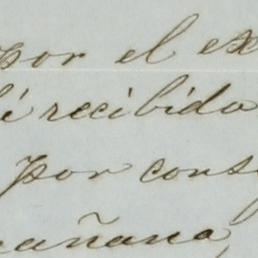 por el ex
í recibida
por cons
añana,